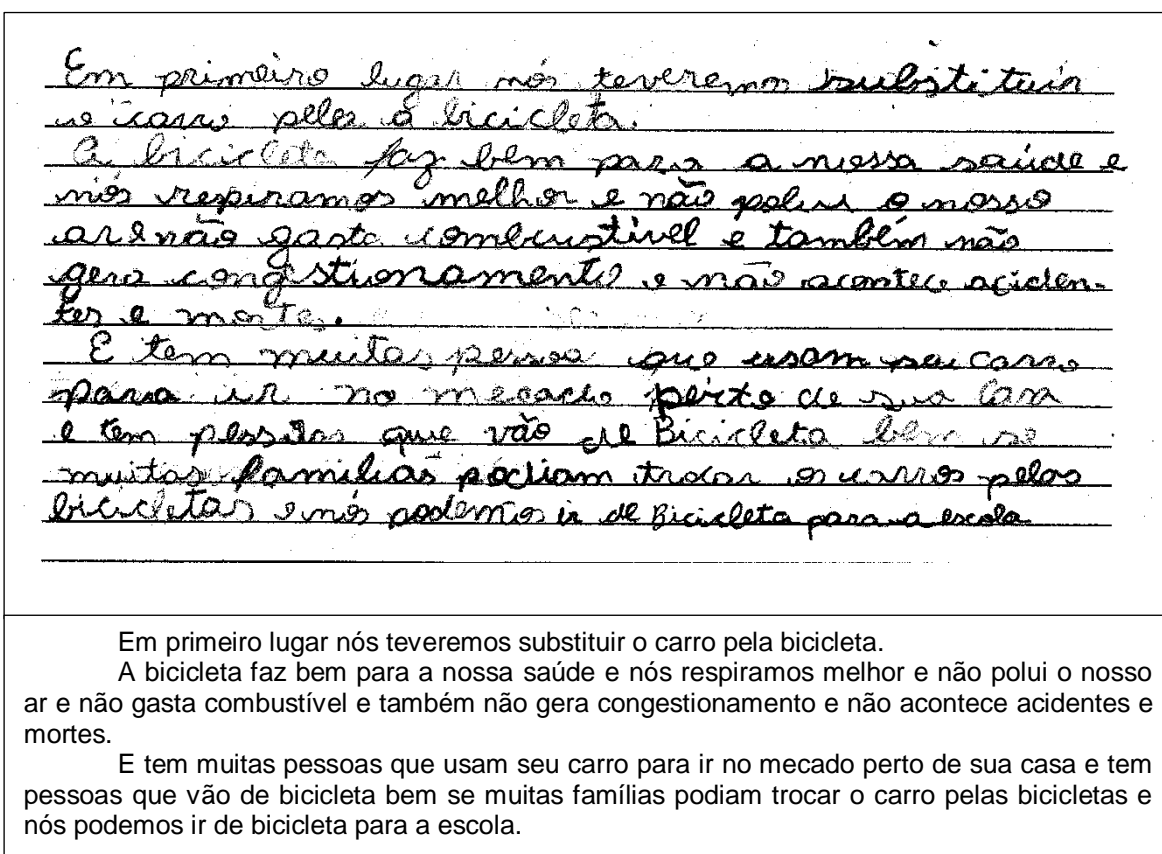 Em primeiro lugar nós teveremos substituir
o carro peler a bicicleta.
A bicicleta faz bem para a nossa saúde e
nós respiramos melhor e não polui o nosso
ar e não gasta combustivel e também não
gera congestionamento e não acontece aciden-
tes e mortes.
E tem muitas pessoa que usam seu carro
para ir no mecado perto de sua casa
e tem pessoas que vão de Bicicleta bem se
muitas familias podiam trocar os carros pelas
bicicletas e nós podemos ir de Bicicleta para a escola
Em primeiro lugar nós teveremos substituir o carro pela bicicleta.
A bicicleta faz bem para a nossa saúde e nós respiramos melhor e não polui o nosso
ar e não gasta combustível e também não gera congestionamento e não acontece acidentes e
mortes.
E tem muitas pessoas que usam seu carro para ir no mecado perto de sua casa e tem
pessoas que vão de bicicleta bem se muitas famílias podiam trocar o carro pelas bicicletas e
nós podemos ir de bicicleta para a escola.